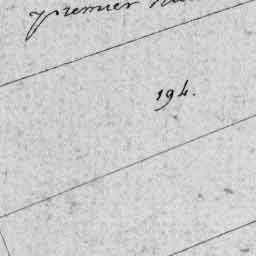 premier
194.